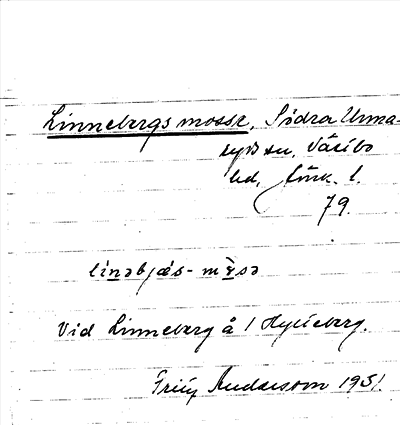 Linnebergs mosse, Södra Unna-
ryd sn, Västbo
hd, Jönk. l.
79.
linəbjæs-mɤsə
Vid Linneberg å 1 Hylteberg.
Friij Andersson 1931.